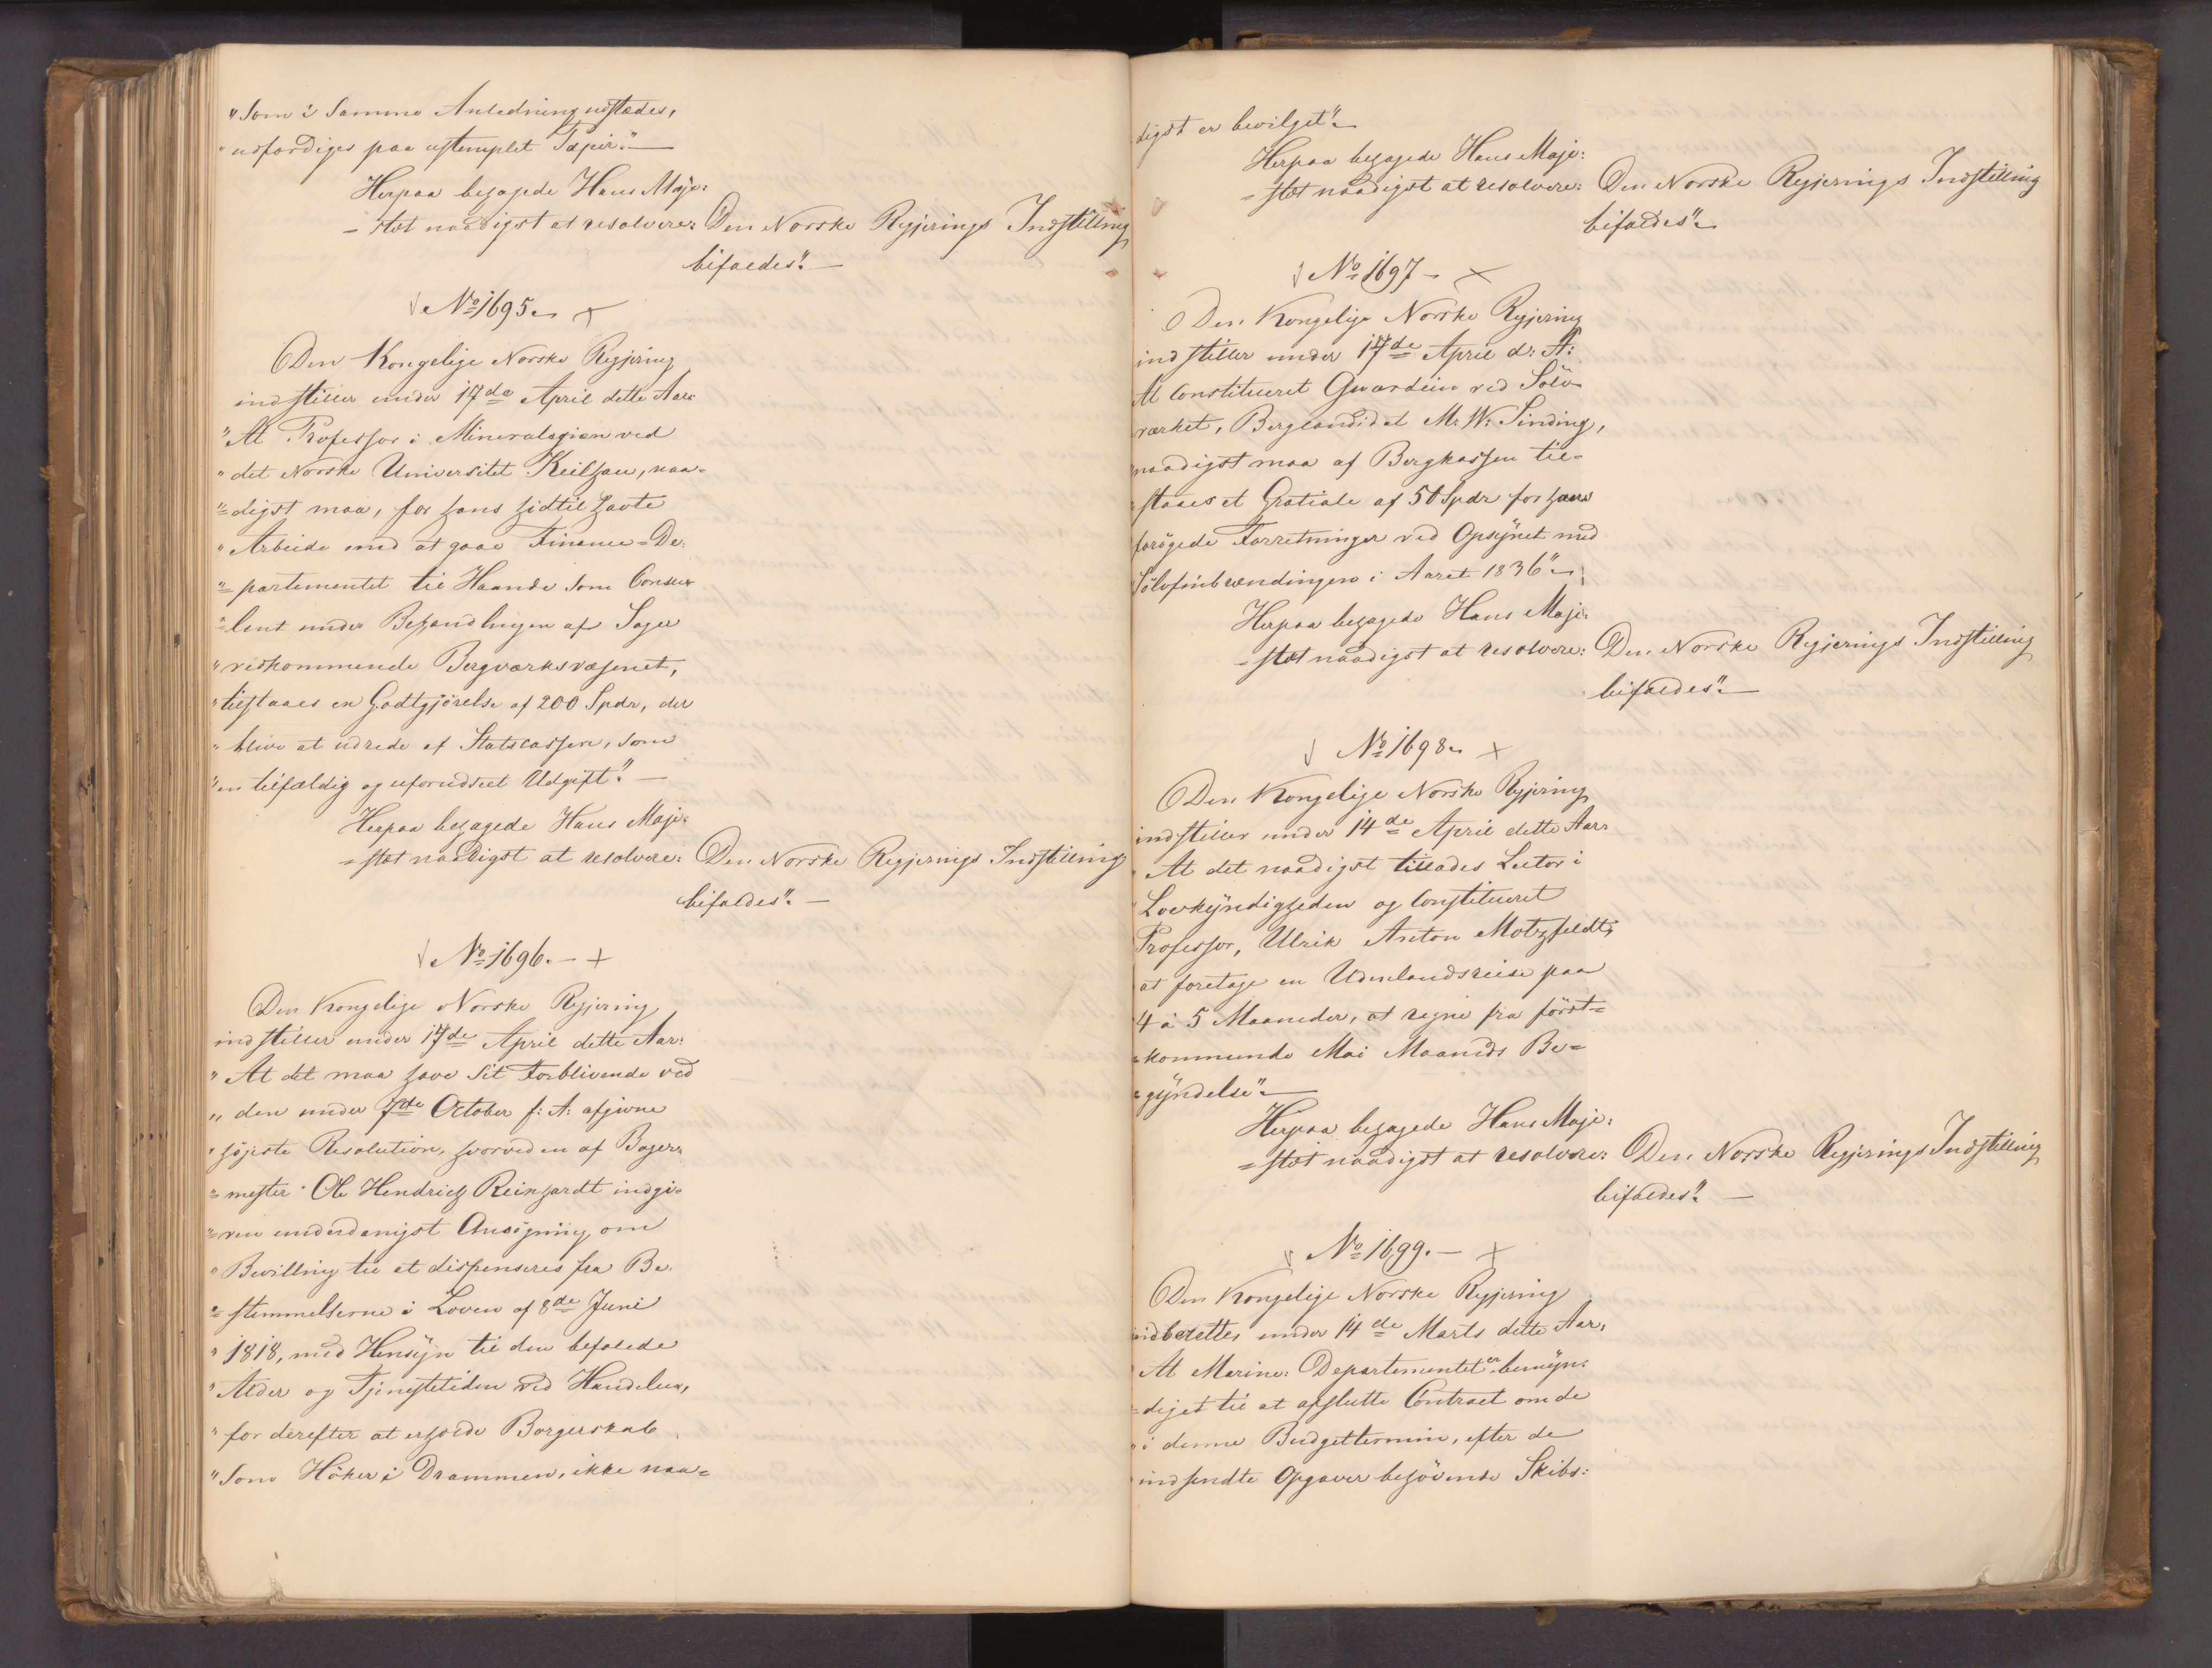 "Som i Samme Anledning udstædes,
"udfærdiges paa ustemplet Papir." —
Herpaa behagede Hans Maje:
= stæt naadigst at resolvere: Den Norske Regjerings Indstilling
bifaldes". —
No 1695. +
Den Kongelige Norske Regjering
indstiller under 17de April dette Aar:
"At Professor i Mineralogien ved
"det Norske Universitet Keilhau, naa=
"=digst maa, for hans hidtil havte
"Arbeide med at gaae Finance=De:
"=partementet til Haande som Consu=
"=lent under Behandlingen af Sager
"vedkommende Bergværksvæsenet,
"tilstaaes en Godtgjörelse af 200 Spdr, der
"blive at udrede af Statscassen, som
"en tilfældig og uforudseet Udgift". —
Herpaa behagede Hans Maje:
=stæt naadigst at resolvere: Den Norske Regjerings Indstilling
bifaldes". —
No 1696. — +
Den Kongelige Norske Regjering
indstiller under 17de April dette Aar:
"At det maa have sit Forblivende ved
"den under 7de October f: A: afgivne
"höjeste Resolution, hvorved en af Bager=
"=mester Ole Hendrich Reinhardt indgi=
"=ven underdanigst Ansögning om
"Bevilling til at dispenseres fra Be=
"=stemmelserne i Loven af 8de Juni
"1818, med Hensyn til den befalede
"Alder og Tjenestetiden ved Handelen,
"for derefter at erholde Borgerskab
"som Höker i Drammen, ikke naa=
digst er bevilget".
Herpaa behagede Hans Maje:
=stæt naadigst at resolvere: Den Norske Regjerings Indstilling
bifaldes".
No 1697 — +
Den Kongelige Norske Regjering
indstiller under 17de April d: A:
At Constitueret Guardein ved Sölv=
værket, Bergcandidat M. W. Sinding,
naadigst maa af Bergkassen til=
=staaes et Gratiale af 50 Spdr for hans
forögede Forretninger ved Opsynet med
Sölvfinbrændingen i Aaret 1836".
Herpaa behagede Hans Maje:
=stæt naadigst at resolvere: Den Norske Regjerings Indstilling
bifaldes". —
No 1698. +
Den Kongelige Norske Regjering
indstiller under 14de April dette Aar:
"At det naadigst tillades Lector i
"Lovkyndigheden og Constitueret
Professor, Ulrik Anton Motzfeldt,
at foretage en Udenlandsreise paa
4 à 5 Maaneder, at regne fra först=
=kommende Mai Maaneds Be=
=gyndelse". —
Herpaa behagede Hans Maje:
=stæt naadigst at resolvere: Den Norske Regjerings Indstilling
bifaldes". —
No 1699. — +
Den Kongelige Norske Regjering
indberetter under 14de Marts dette Aar,
"At Marine: Departementet er bemyn:
=diget til at afslutte Contract om de
"i denne Budgettermin, efter de
"indsendte Opgaver behövende Skibs: